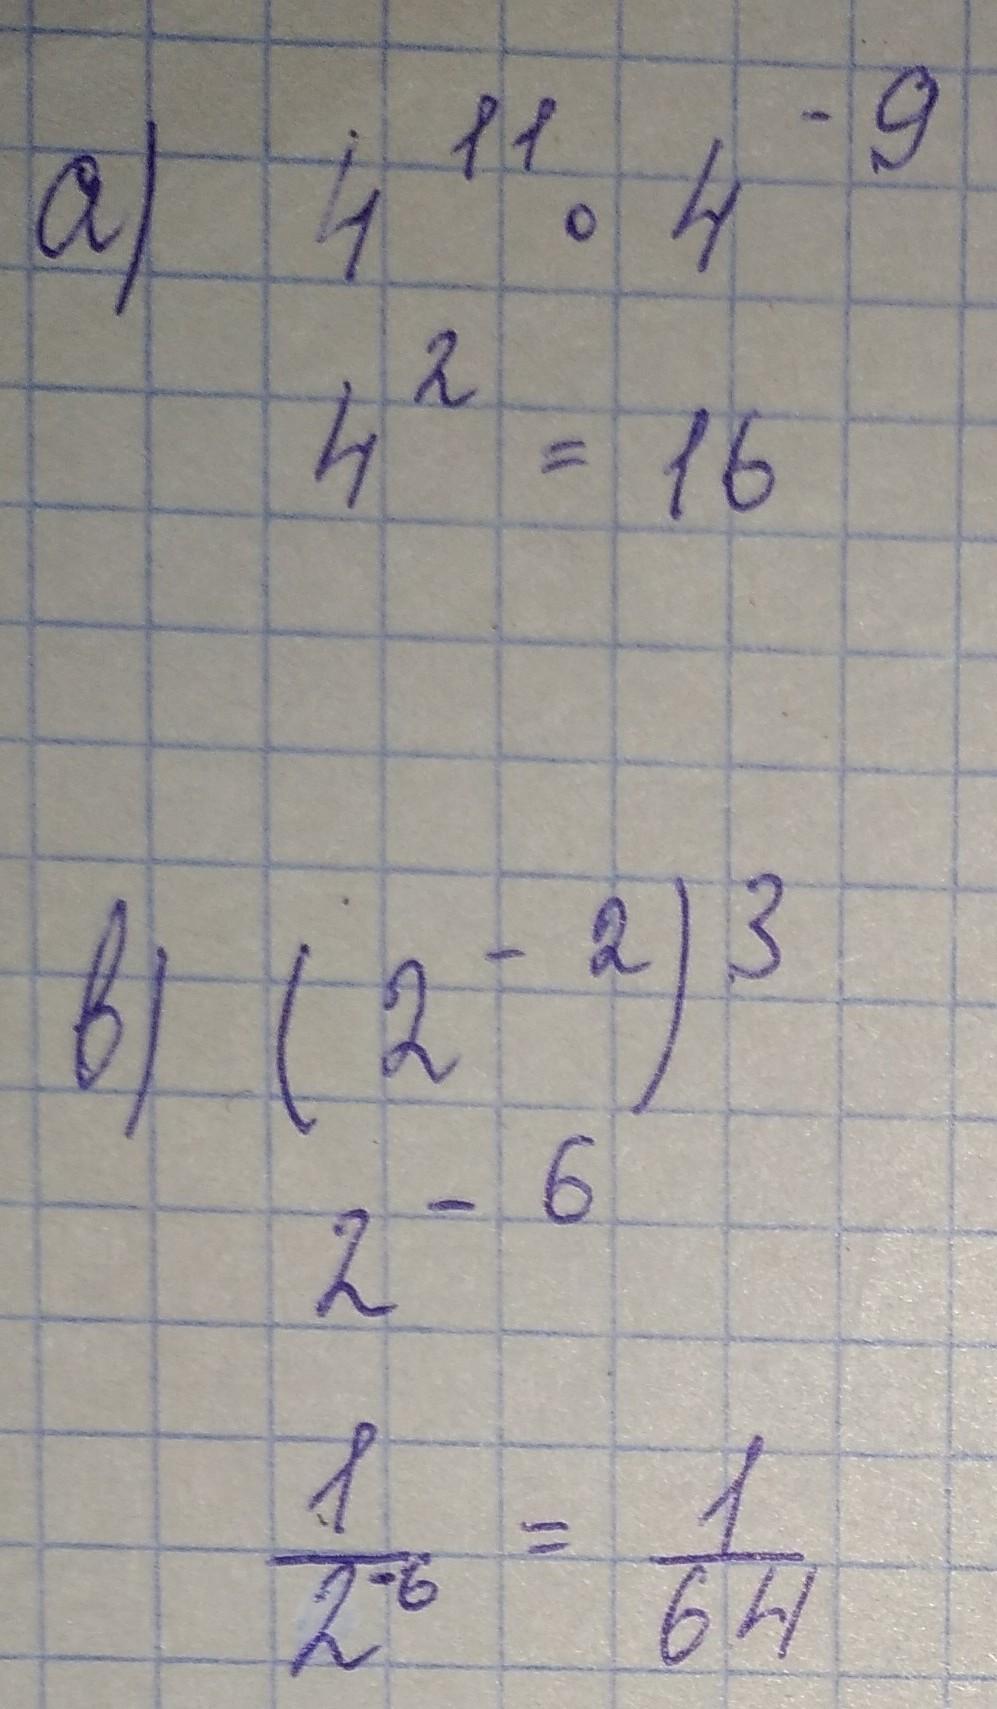 а) 4¹¹ · 4⁻⁹
4² = 16
в) (2⁻²)³
2⁻⁶
1/2⁻⁶ = 1/64